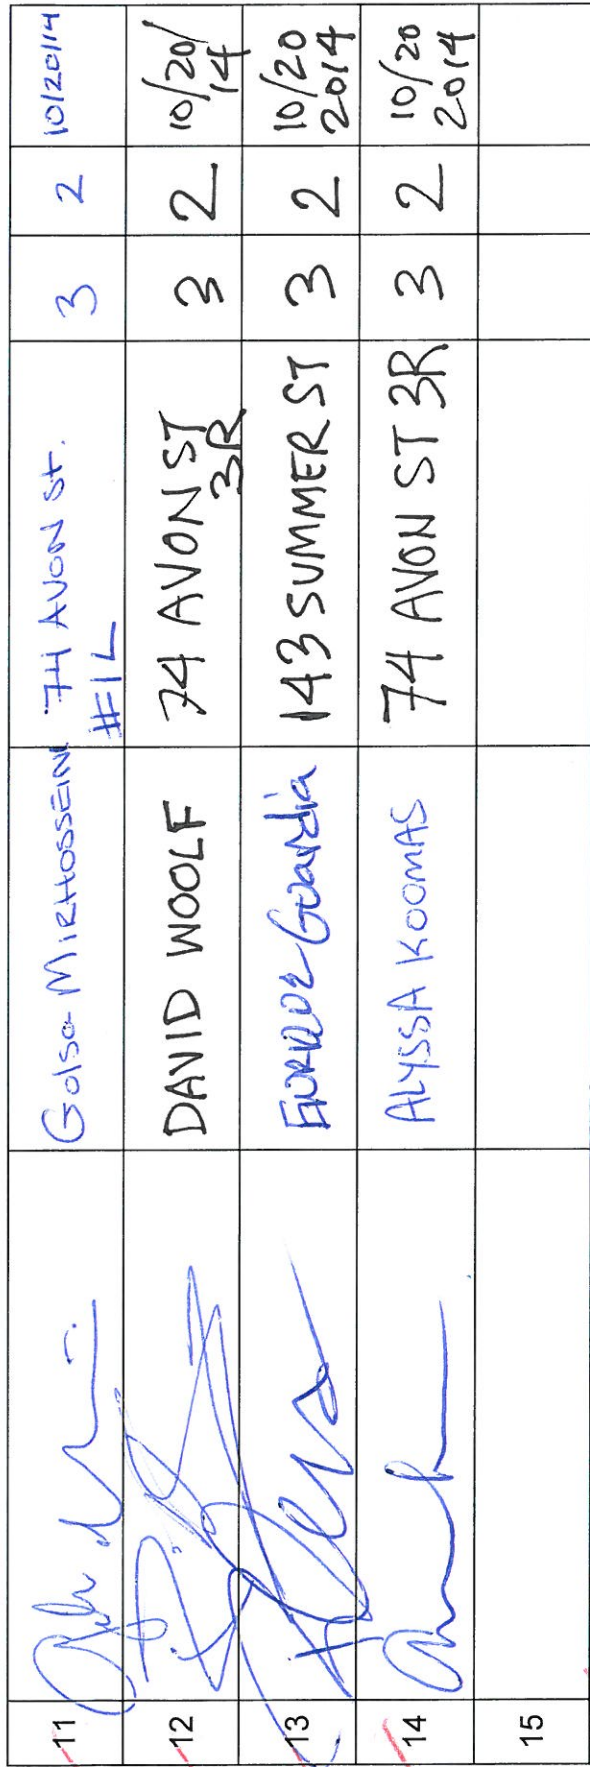 11 Golsa MIRHOSSEINI 74 AVON St. 3 2 10/20/14
#1L
12 DAVID WOOLF 74 AVON ST 3 2 10/20/
3R 14
13 Guardia 143 SUMMER ST 3 2 10/20
2014
14 ALYSSA KOOMAS 74 AVON ST 3R 3 2 10/20
2014
15